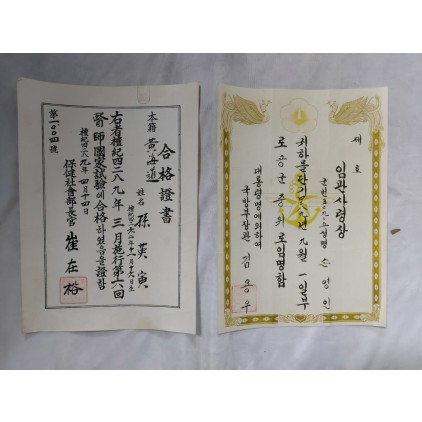 合格證書
本籍 黃海道
姓名 孫英寅
檀紀四二六二年十一月十六日生
右者檀紀四二八九年三月施行第六回
醫師國家試驗에合格하였음을證함
檀紀四二八九年四月十四日
保健社會部長官 崔在裕
第一〇〇四號
제 호
임관사령장
손영인
귀하를단기
년九월一일부
로공군중위로임명함
대통령명에의하여
국방부장관 김용우